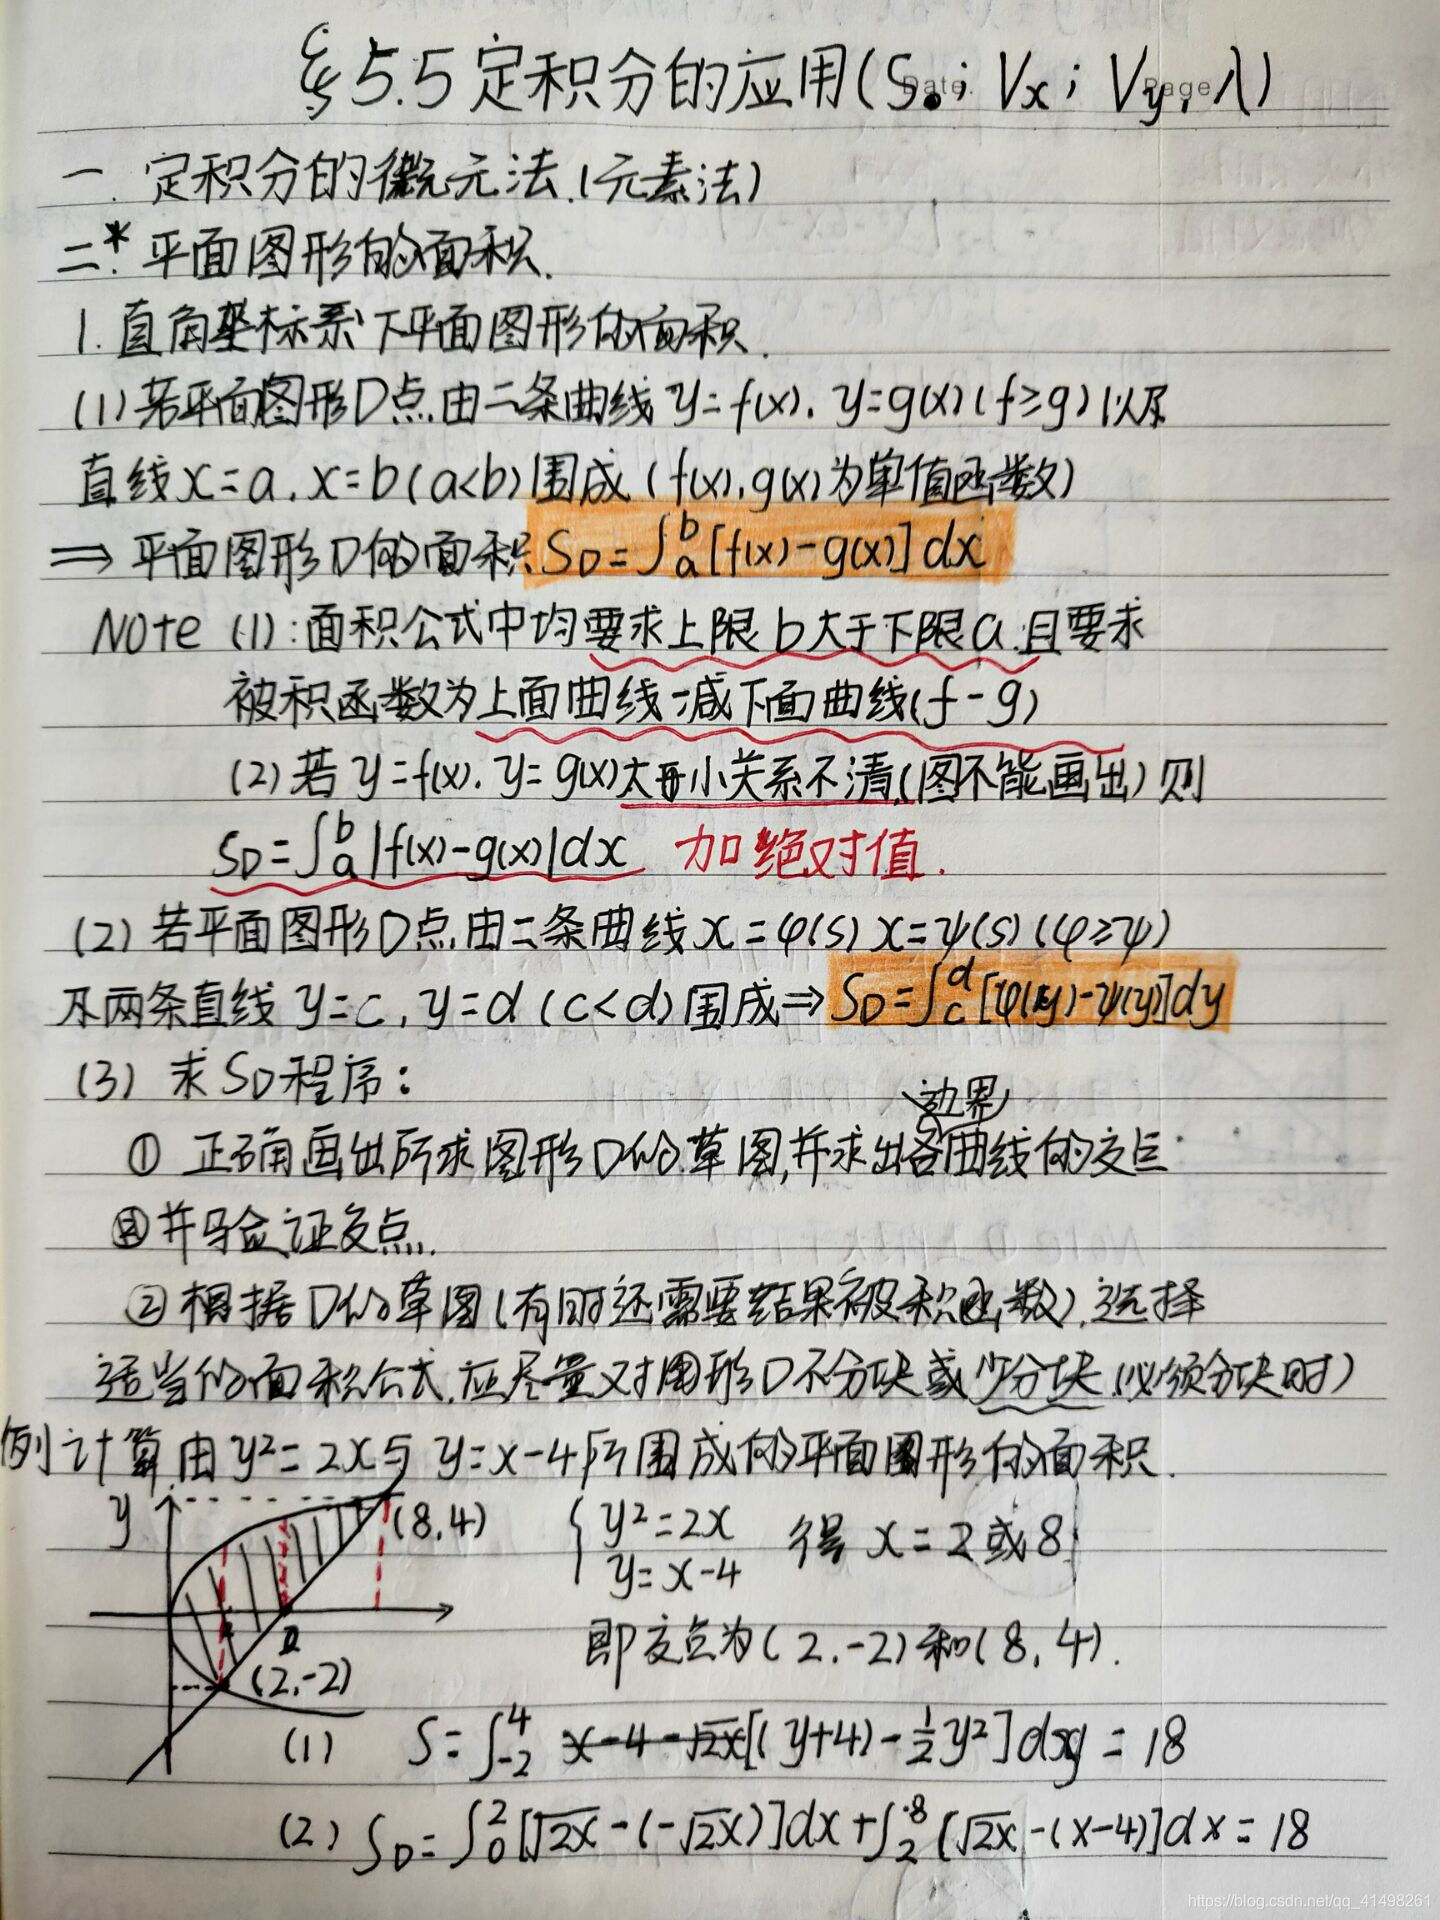 §5.5定积分的应用(S.; Vx; Vy, λ)
Date. Page
一. 定积分的微元法.(元素法)
二*. 平面图形的面积.
1. 直角坐标系下平面图形的面积.
(1)若平面图形D点.由二条曲线 y=f(x). y=g(x)(f≥g)以及
直线x=a.x=b(a<b)围成.(f(x).g(x)为单值函数)
⇒ 平面图形D的面积 S_D=∫_a^b[f(x)-g(x)]dx
Note (1):面积公式中均要求上限b大于下限a.且要求
被积函数为上面曲线减下面曲线(f-g)
(2)若 y=f(x). y=g(x)大小关系不清.(图不能画出)则
S_D=∫_a^b|f(x)-g(x)|dx 加绝对值.
(2)若平面图形D点.由二条曲线 x=φ(s) x=ψ(s)(φ≥ψ)
及两条直线 y=c, y=d (c<d)围成⇒ S_D=∫_c^d[φ(y)-ψ(y)]dy
(3) 求S_D程序:
边界
① 正确画出所求图形D的草图,并求出各曲线的交点
并验证交点.
②根据D的草图(有时还需要结果被积函数).选择
适当的面积公式.应尽量对图形D不分块或少分块.(必须分块时)
例计算.由 y²=2x与 y=x-4所围成的平面图形的面积.
y (8,4) { y²=2x 得 x=2或8
y=x-4
即交点为(2.-2)和(8,4).
(2,-2)
(1) S=∫_{-2}^4 x-4-√2x[(y+4)-½y²]dy=18
(2) S_D=∫_0^2[√2x-(-√2x)]dx+∫_2^8[√2x-(x-4)]dx=18
https://blog.csdn.net/qq_41498261